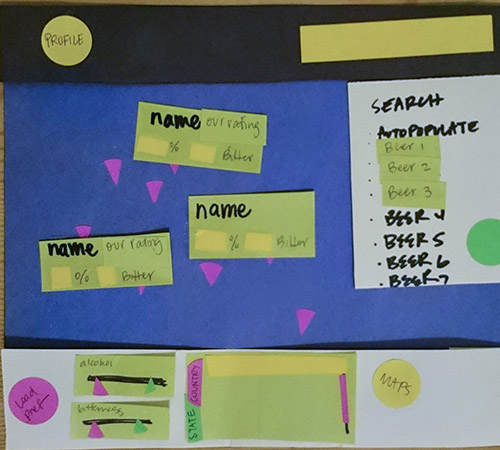 PROFILE
name our rating
% Bitter
name
% Bitter
name our rating
% Bitter
SEARCH
· AUTOPOPULATE
· Beer 1
· Beer 2
· Beer 3
· BEER 4
· BEER 5
· BEER 6
· BEER 7
Load
Pref
alcohol
bitterness
COUNTRY
STATE
MAPS